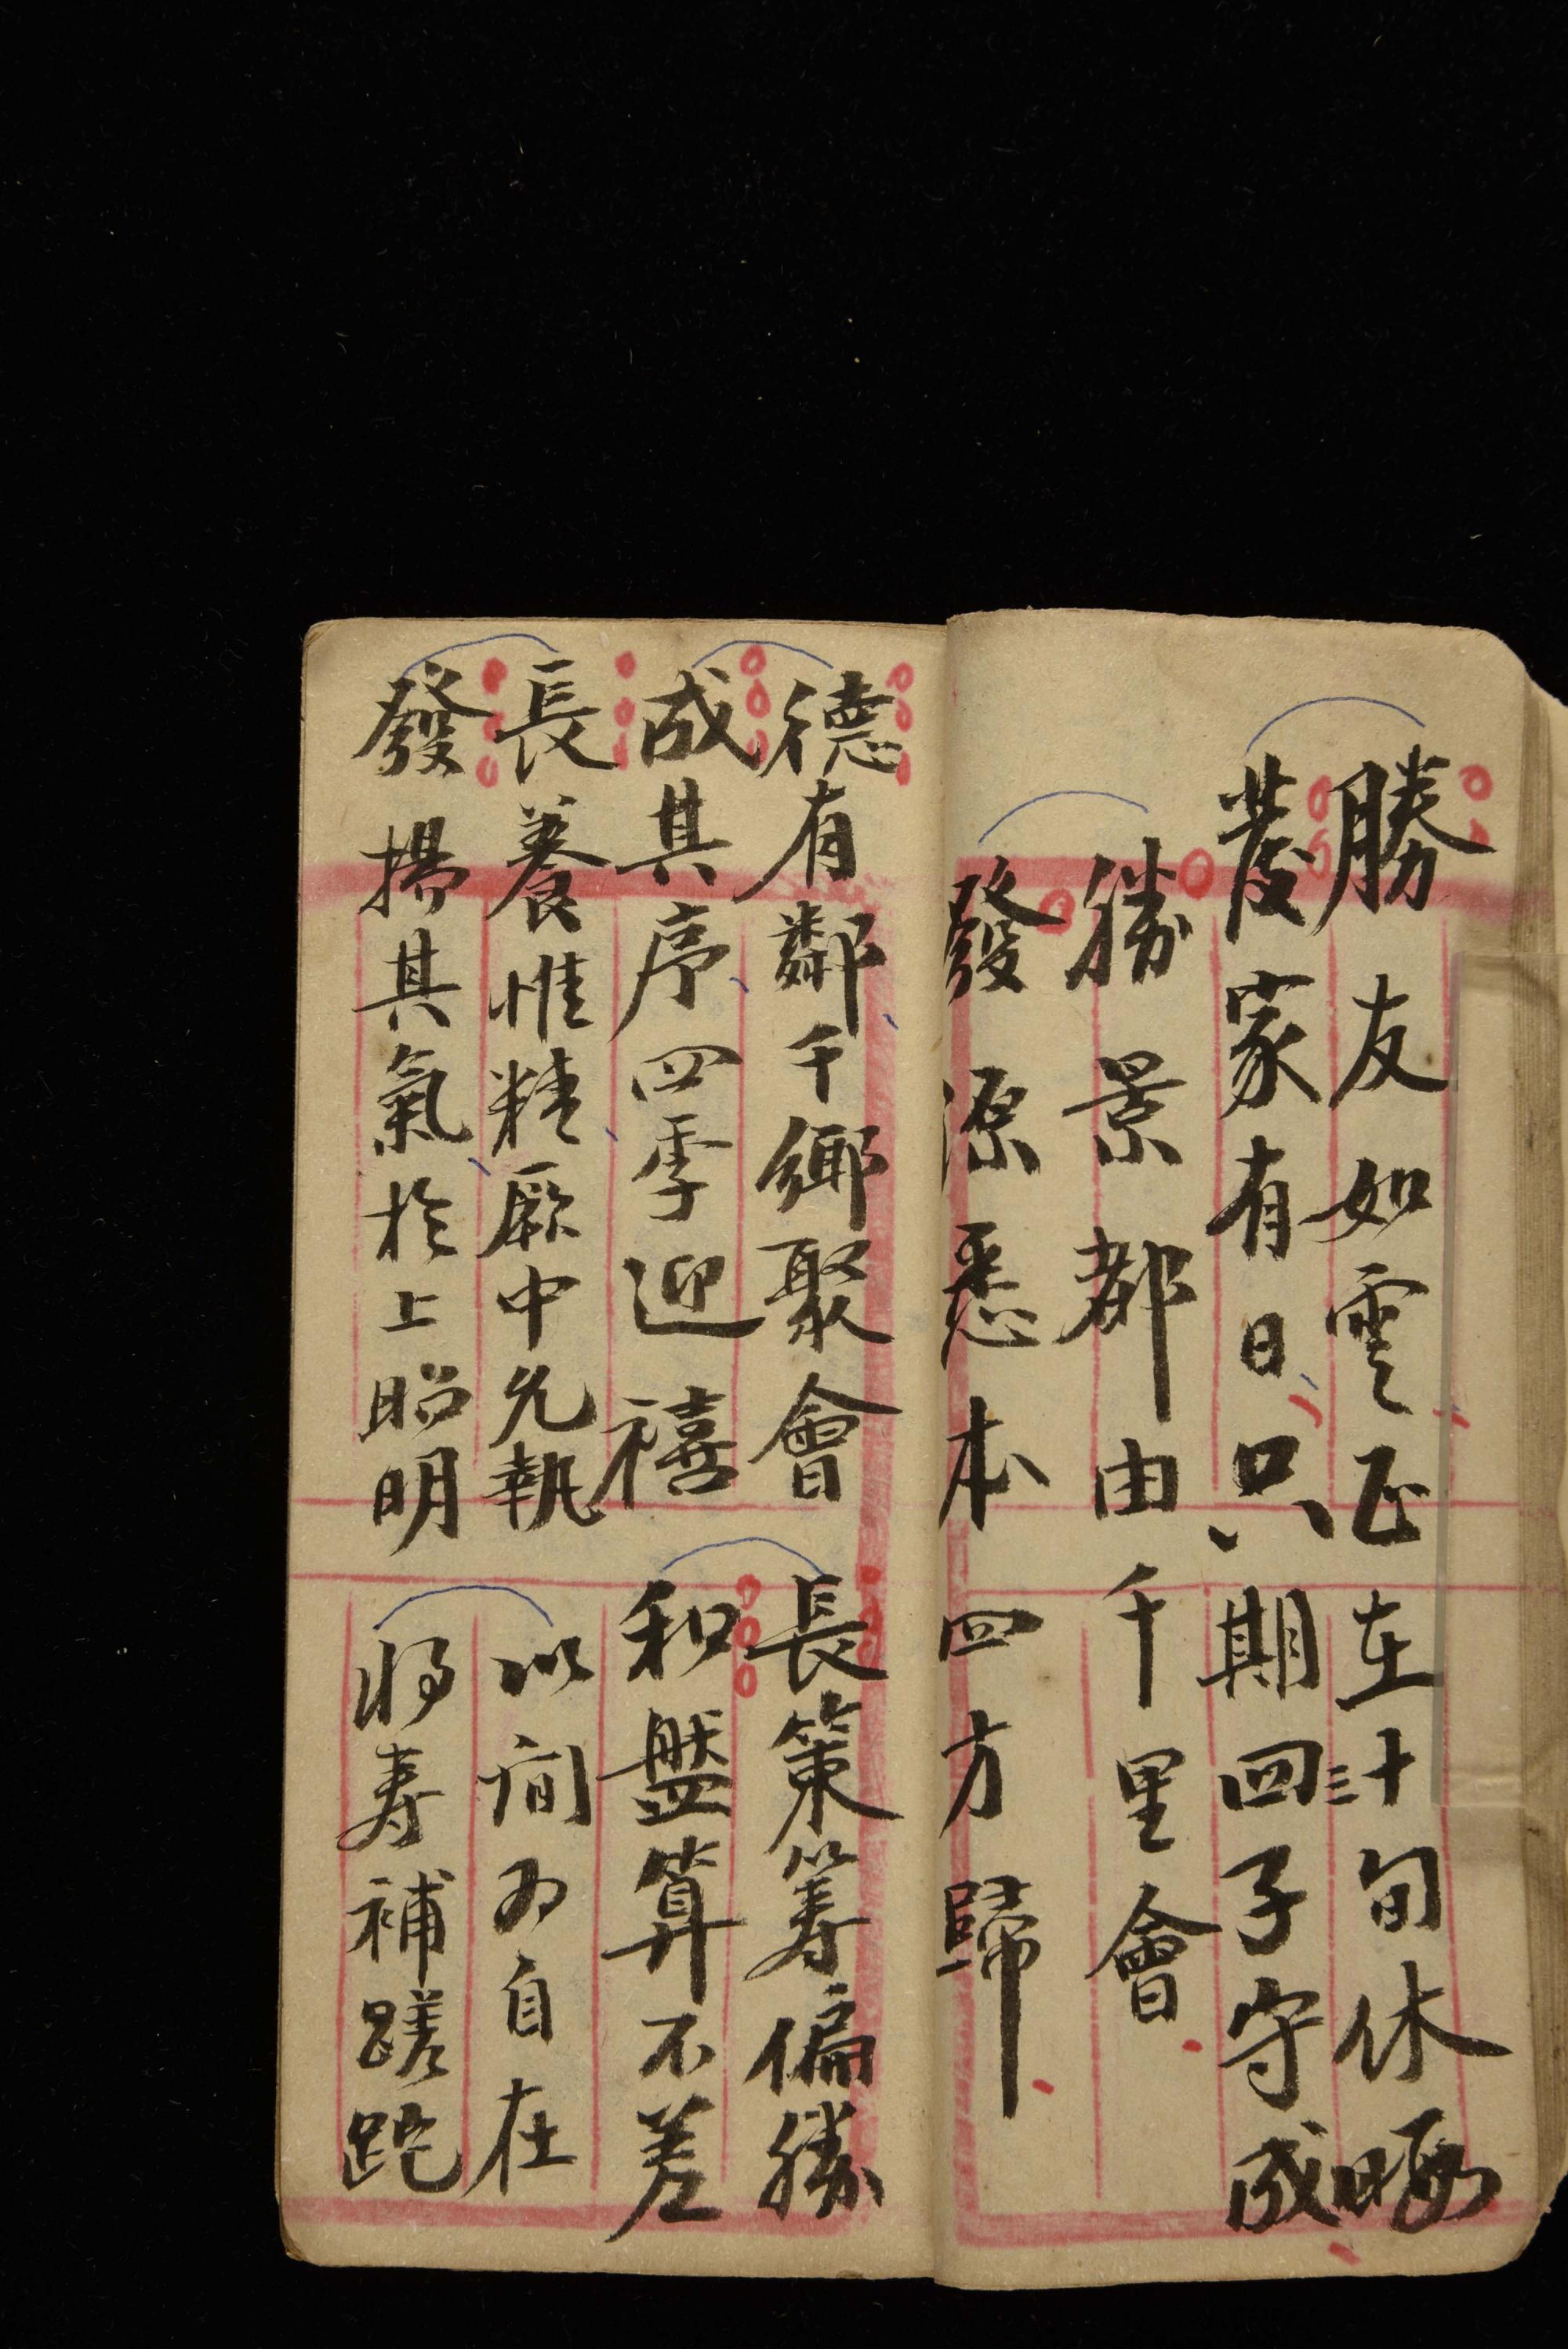 勝友如雲正在十旬休暇
發家有日只期四子守成
勝景都由千里會
發源悉本四方歸
德有鄰千鄉聚會
成其序四季迎禧
長養惟精厥中允執
發揚其氣於上昭明
長策籌偏勝
和盤算不差
以為自在
将寿補蹉跎